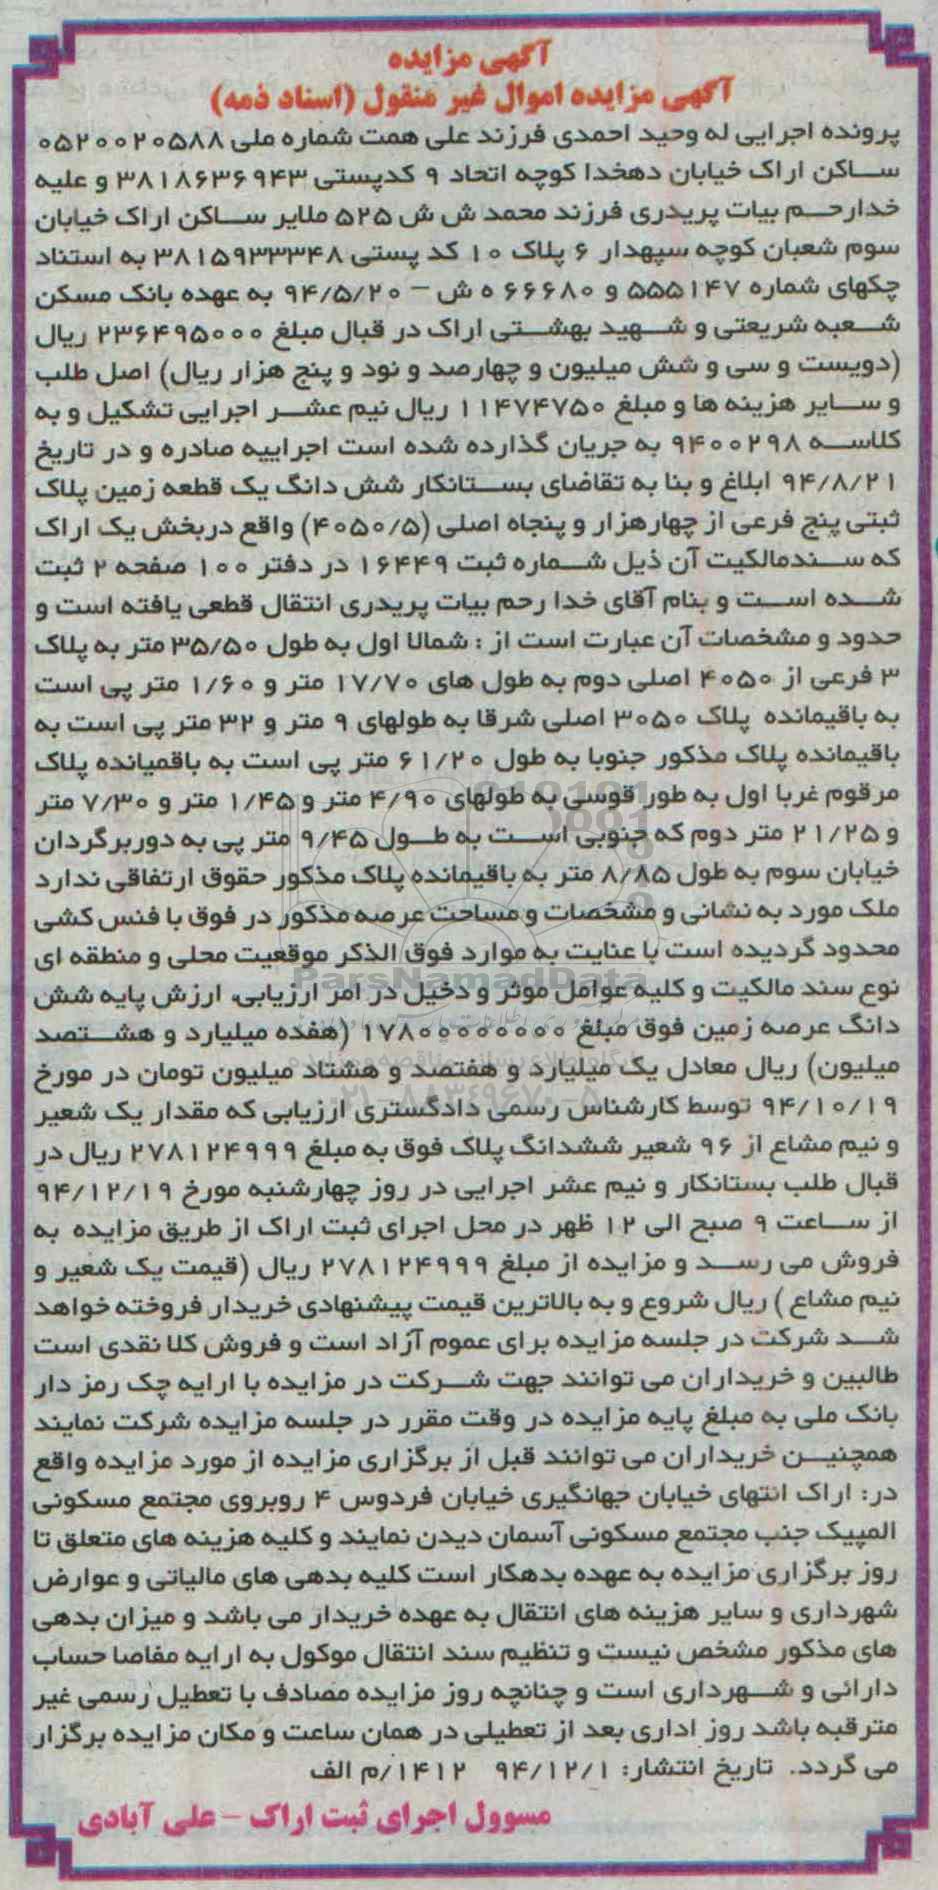 آگهی مزایده
آگهی مزایده اموال غیر منقول (اسناد ذمه)
پرونده اجرایی له وحید احمدی فرزند علی همت شماره ملی ۰۵۲۰۰۲۰۵۸۸
ساکن اراک خیابان دهخدا کوچه اتحاد ۹ کدپستی ۳۸۱۸۶۳۶۹۴۳ و علیه
خدارحم بیات پریدری فرزند محمد ش ش ۵۲۵ ملایر ساکن اراک خیابان
سوم شعبان کوچه سپهدار ۶ پلاک ۱۰ کد پستی ۳۸۱۵۹۳۳۳۴۸ به استناد
چکهای شماره ۵۵۵۱۴۷ و ۶۶۶۸۰ ه ش – ۹۴/۵/۲۰ به عهده بانک مسکن
شعبه شریعتی و شهید بهشتی اراک در قبال مبلغ ۲۳۶۴۹۵۰۰۰ ریال
(دویست و سی و شش میلیون و چهارصد و نود و پنج هزار ریال) اصل طلب
و سایر هزینه ها و مبلغ ۱۱۴۷۴۷۵۰ ریال نیم عشر اجرایی تشکیل و به
کلاسه ۹۴۰۰۲۹۸ به جریان گذارده شده است اجراییه صادره و در تاریخ
۹۴/۸/۲۱ ابلاغ و بنا به تقاضای بستانکار شش دانگ یک قطعه زمین پلاک
ثبتی پنج فرعی از چهارهزار و پنجاه اصلی (۴۰۵۰/۵) واقع دربخش یک اراک
که سندمالکیت آن ذیل شماره ثبت ۱۶۴۴۹ در دفتر ۱۰۰ صفحه ۲ ثبت
شده است و بنام آقای خدا رحم بیات پریدری انتقال قطعی یافته است و
حدود و مشخصات آن عبارت است از : شمالا اول به طول ۳۵/۵۰ متر به پلاک
۳ فرعی از ۴۰۵۰ اصلی دوم به طول های ۱۷/۷۰ متر و ۱/۶۰ متر پی است
به باقیمانده پلاک ۳۰۵۰ اصلی شرقا به طولهای ۹ متر و ۳۲ متر پی است به
باقیمانده پلاک مذکور جنوبا به طول ۶۱/۲۰ متر پی است به باقمیانده پلاک
مرقوم غربا اول به طور قوسی به طولهای ۴/۹۰ متر و ۱/۴۵ متر و ۷/۳۰ متر
و ۲۱/۲۵ متر دوم که جنوبی است به طول ۹/۴۵ متر پی به دوربرگردان
خیابان سوم به طول ۸/۸۵ متر به باقیمانده پلاک مذکور حقوق ارتفاقی ندارد
ملک مورد به نشانی و مشخصات و مساحت عرصه مذکور در فوق با فنس کشی
محدود گردیده است با عنایت به موارد فوق الذکر موقعیت محلی و منطقه ای
نوع سند مالکیت و کلیه عوامل موثر و دخیل در امر ارزیابی، ارزش پایه شش
دانگ عرصه زمین فوق مبلغ ۱۷۸۰۰۰۰۰۰۰۰ (هفده میلیارد و هشتصد
میلیون) ریال معادل یک میلیارد و هفتصد و هشتاد میلیون تومان در مورخ
۹۴/۱۰/۱۹ توسط کارشناس رسمی دادگستری ارزیابی که مقدار یک شعیر
و نیم مشاع از ۹۶ شعیر ششدانگ پلاک فوق به مبلغ ۲۷۸۱۲۴۹۹۹ ریال در
قبال طلب بستانکار و نیم عشر اجرایی در روز چهارشنبه مورخ ۹۴/۱۲/۱۹
از ساعت ۹ صبح الی ۱۲ ظهر در محل اجرای ثبت اراک از طریق مزایده به
فروش می رسد و مزایده از مبلغ ۲۷۸۱۲۴۹۹۹ ریال (قیمت یک شعیر و
نیم مشاع ) ریال شروع و به بالاترین قیمت پیشنهادی خریدار فروخته خواهد
شد شرکت در جلسه مزایده برای عموم آزاد است و فروش کلا نقدی است
طالبین و خریداران می توانند جهت شرکت در مزایده با ارایه چک رمز دار
بانک ملی به مبلغ پایه مزایده در وقت مقرر در جلسه مزایده شرکت نمایند
همچنین خریداران می توانند قبل از برگزاری مزایده از مورد مزایده واقع
در: اراک انتهای خیابان جهانگیری خیابان فردوس ۴ روبروی مجتمع مسکونی
المپیک جنب مجتمع مسکونی آسمان دیدن نمایند و کلیه هزینه های متعلق تا
روز برگزاری مزایده به عهده بدهکار است کلیه بدهی های مالیاتی و عوارض
شهرداری و سایر هزینه های انتقال به عهده خریدار می باشد و میزان بدهی
های مذکور مشخص نیست و تنظیم سند انتقال موکول به ارایه مفاصا حساب
دارائی و شهرداری است و چنانچه روز مزایده مصادف با تعطیل رسمی غیر
مترقبه باشد روز اداری بعد از تعطیلی در همان ساعت و مکان مزایده برگزار
می گردد. تاریخ انتشار: ۹۴/۱۲/۱ ۱۴۱۲/م الف
مسوول اجرای ثبت اراک – علی آبادی
ParsNamadData
۰۲۱-۸۸۳۴۹۶۷۰-۵